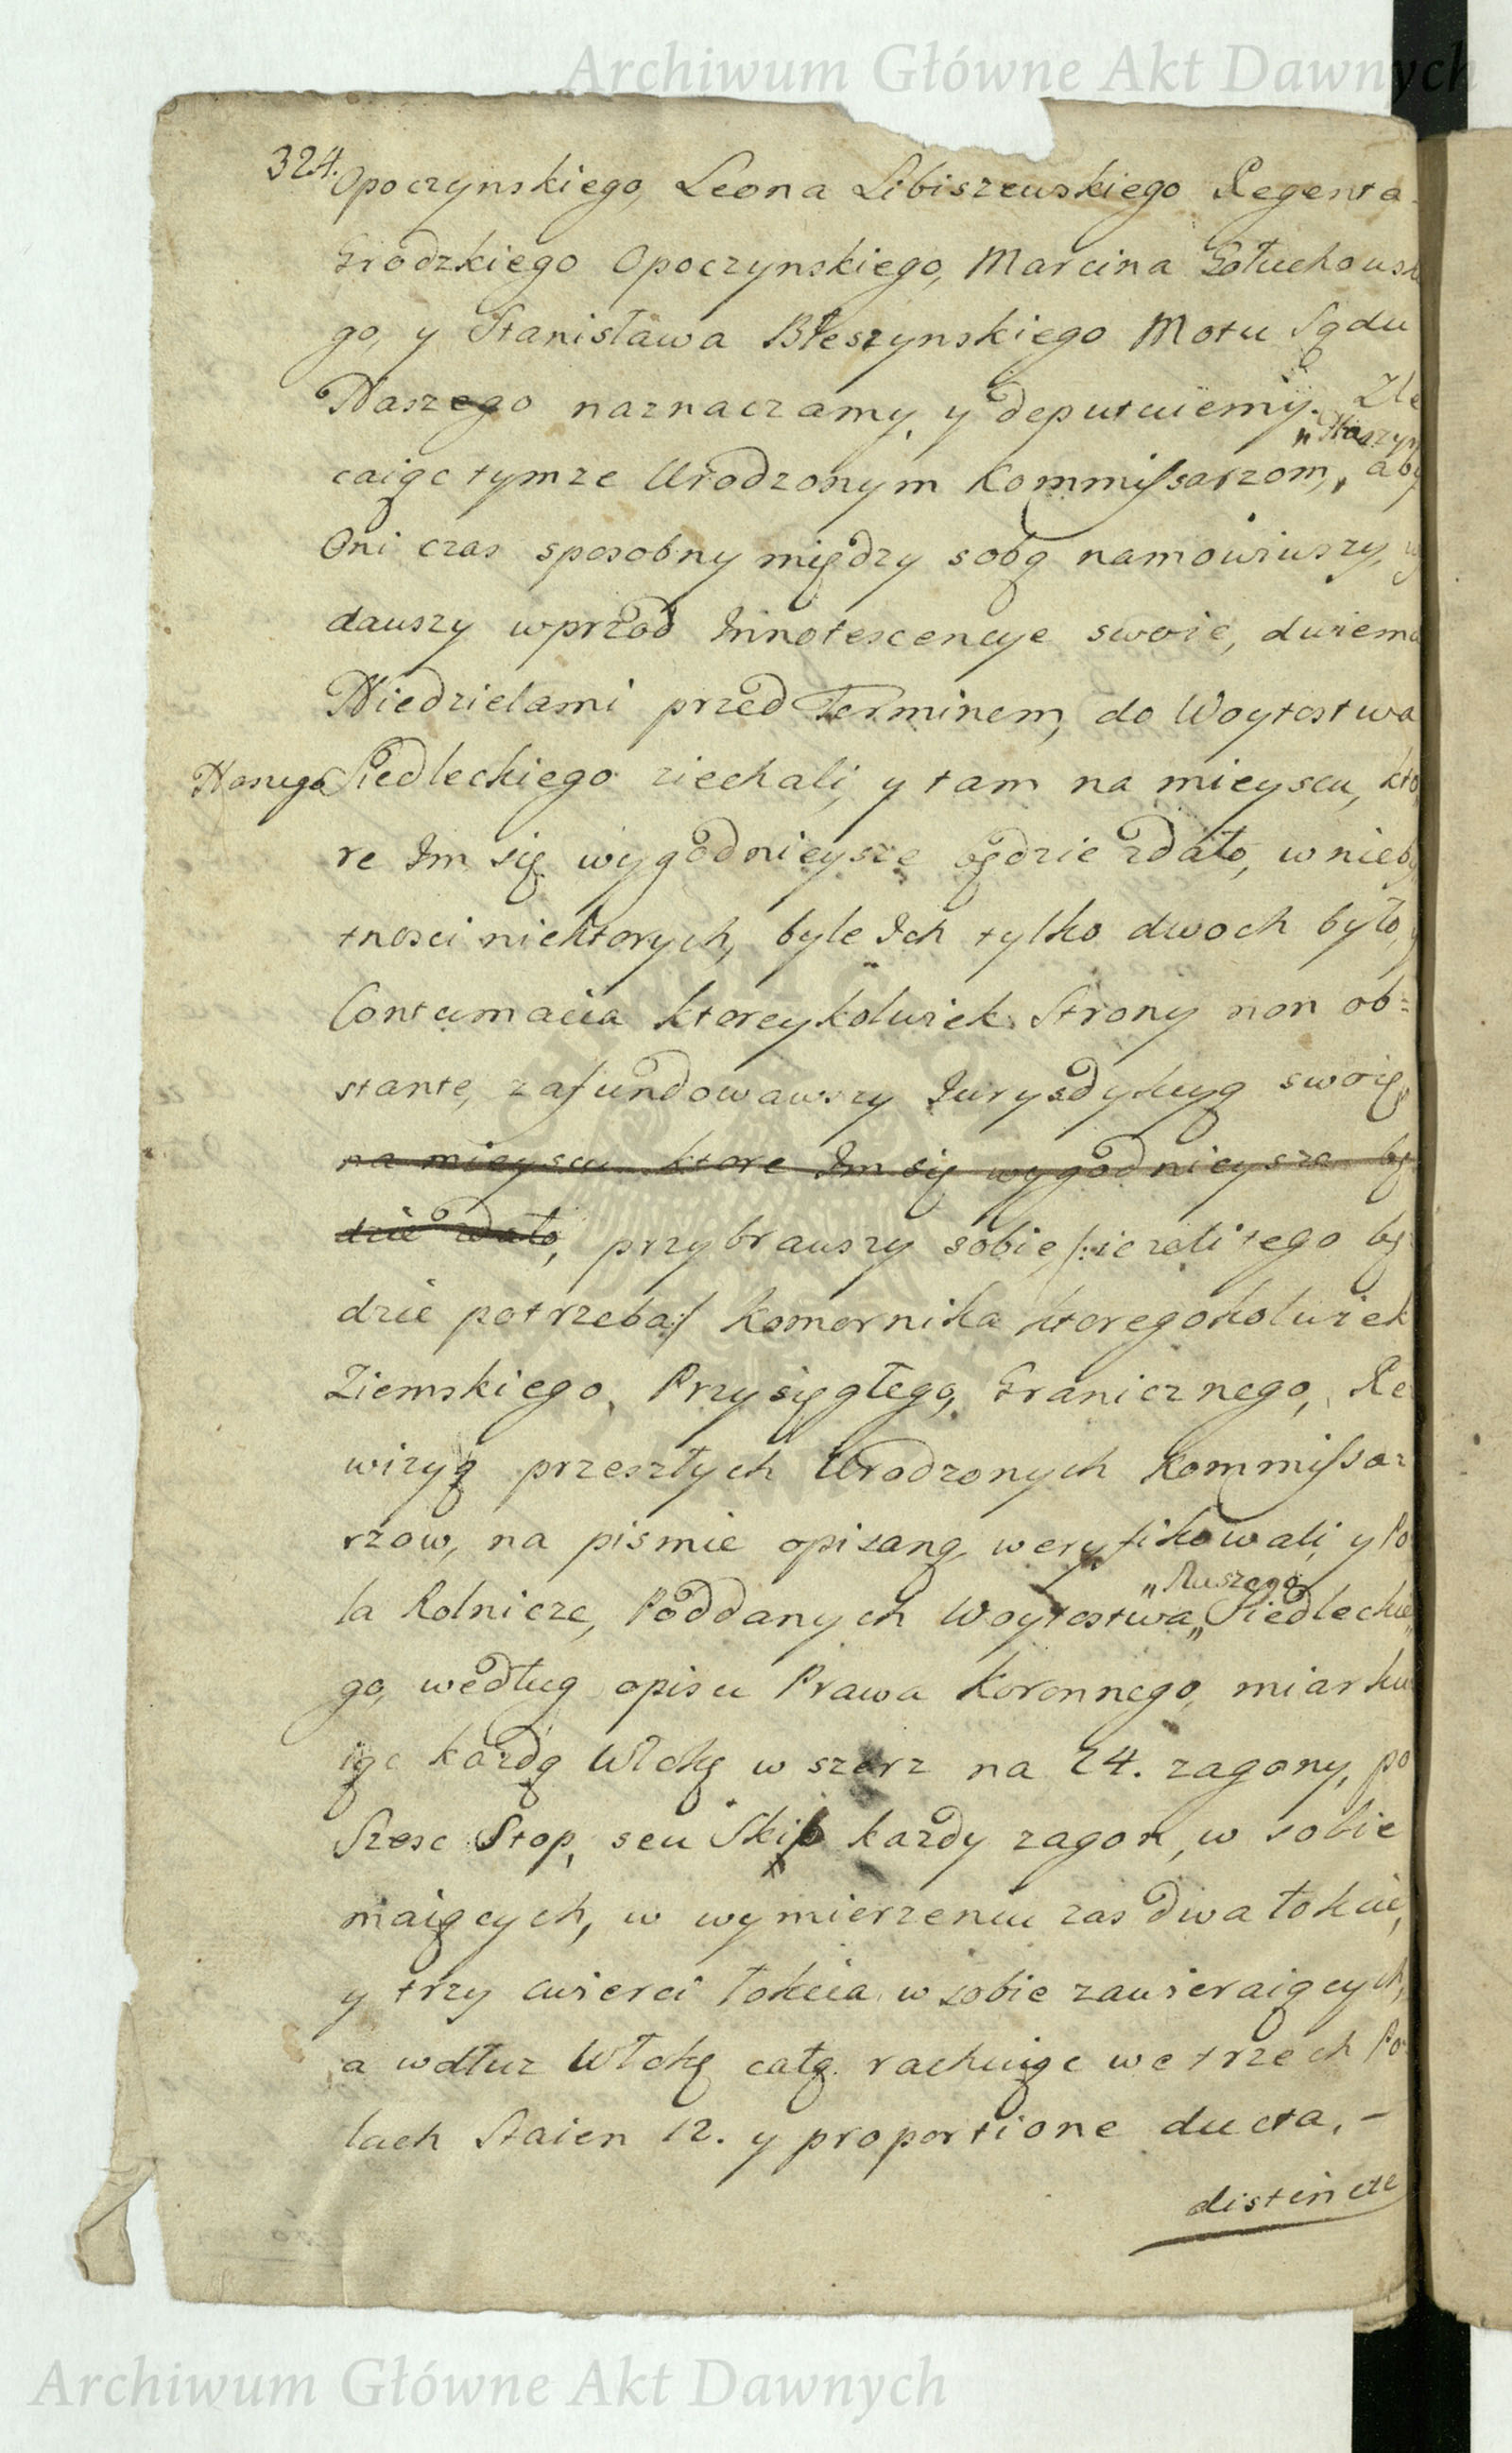 Archiwum Główne Akt Dawnych
324.
Opoczynskiego, Leona Libiszewskiego Regenta
Grodzkiego Opoczynskiego, Marcina Gołuchowski
go, y Stanisława Błeszynskiego Motu Sądu
Naszego naznaczamy, y deputuiemy. Zle
„Naszym
caiąc tymze Urodzonym Kommissarzom, aby
Oni czas sposobny między sobą namowiwszy, wy
dawszy wprzod Innotescencye swoie, dwiema
Niedzielami przed Terminem, do Woytostwa
Naszego Siedleckiego ziechali, y tam na mieyscu, kto
re Im się wygodnieysze będzie zdało, w nieby
tnosci niektorych, byle Ich tylko dwoch było, y
Contumacia ktoreykolwiek Strony non ob=
stante, zafundowawszy Jurysdykcyą swoię,
na mieyscu ktore Im się wygodnieysze bę
dzie zdało, przybrawszy sobie /:iezeli tego bę
dzie potrzeba:/ Komornika ktoregokolwiek
Ziemskiego, Przysięgłego, Granicznego, Re
wizyą przeszłych Urodzonych Kommissa
rzow, na pismie opisaną weryfikowali, y Po
„Naszego
la Rolnicze, Poddanych Woytostwa „ Siedleckie
go, według opisu Prawa Koronnego, miarku
iąc kazdą Włokę w szerz na 24. zagony, po
Szesc Stop, seu Skib kazdy zagon, w sobie
maiących, w wymierzeniu zas dwa łokcie,
y trzy cwierci łokcia w sobie zawieraiących,
a wdłuz Włokę całą rachuiąc we trzech Po
lach Staien 12. y proportione ducta, -
distincte
Archiwum Główne Akt Dawnych